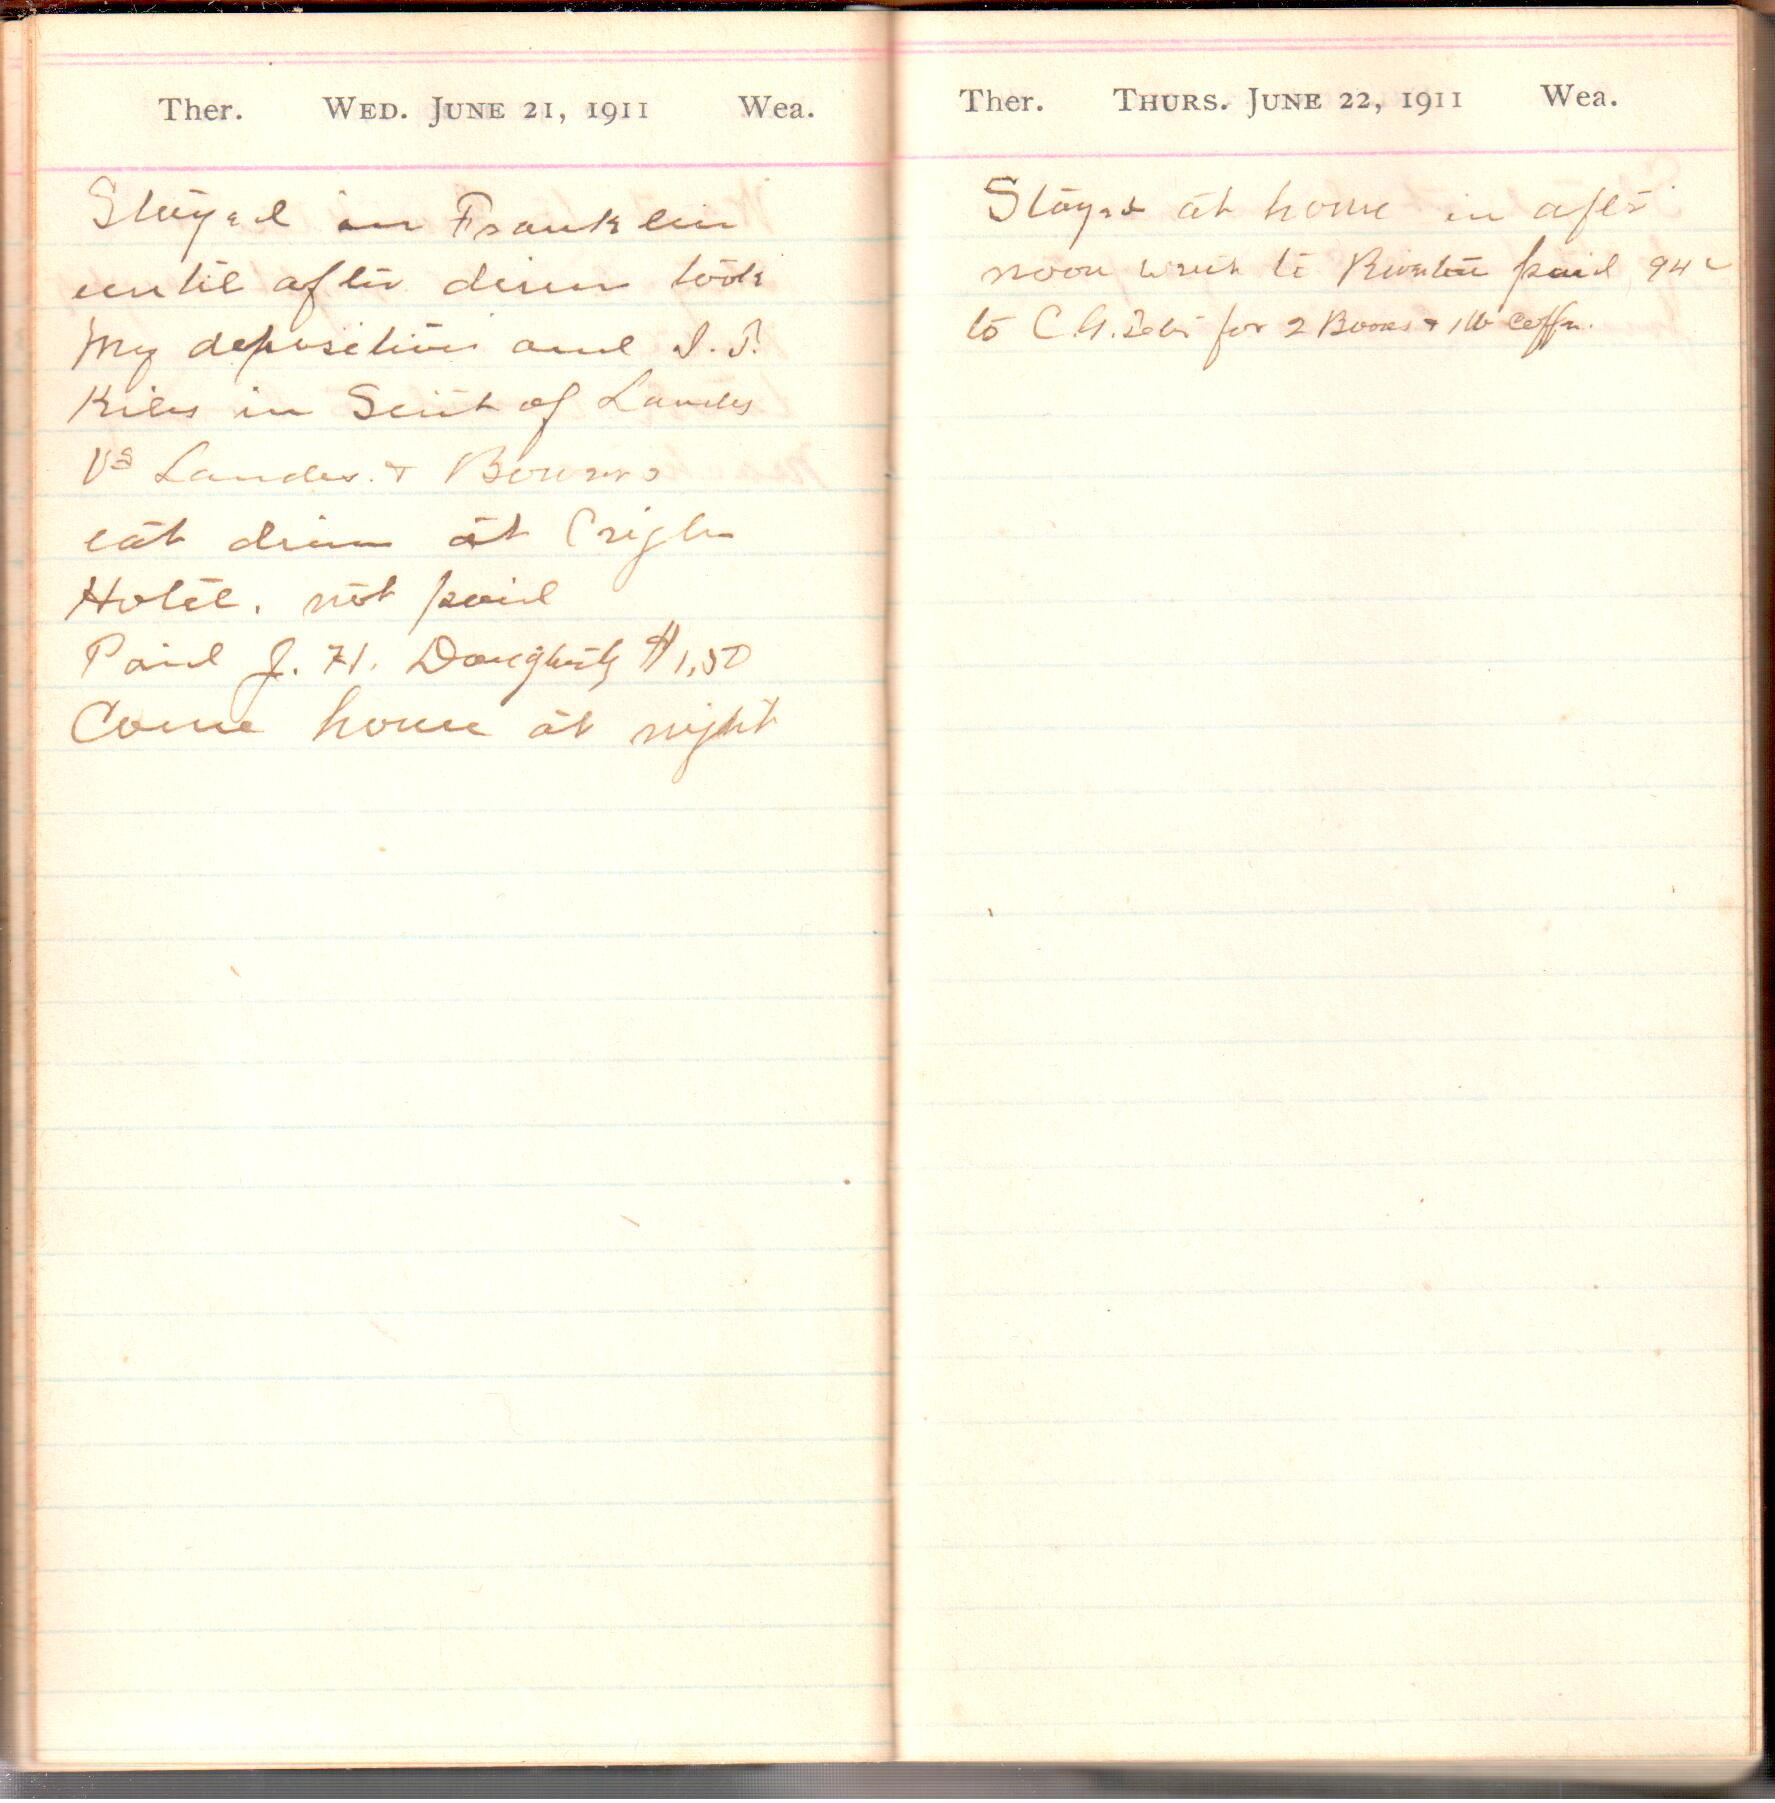 Ther. WED. JUNE 21, 1911 Wea.
Stayed in Franklin
until after dinn took
My deposition and I. T.
Kiles in Suit of Landes
Vs Landes. & Bowers
eat dinn at Crigler
Hotel. not paid
Paid J. H. Daugherty $1,50
Come home at night
Ther. THURS. JUNE 22, 1911 Wea.
Stayed at home in after
noon went to paid 94 c
to C. for 2 Boxes & 1 lb Coffee.